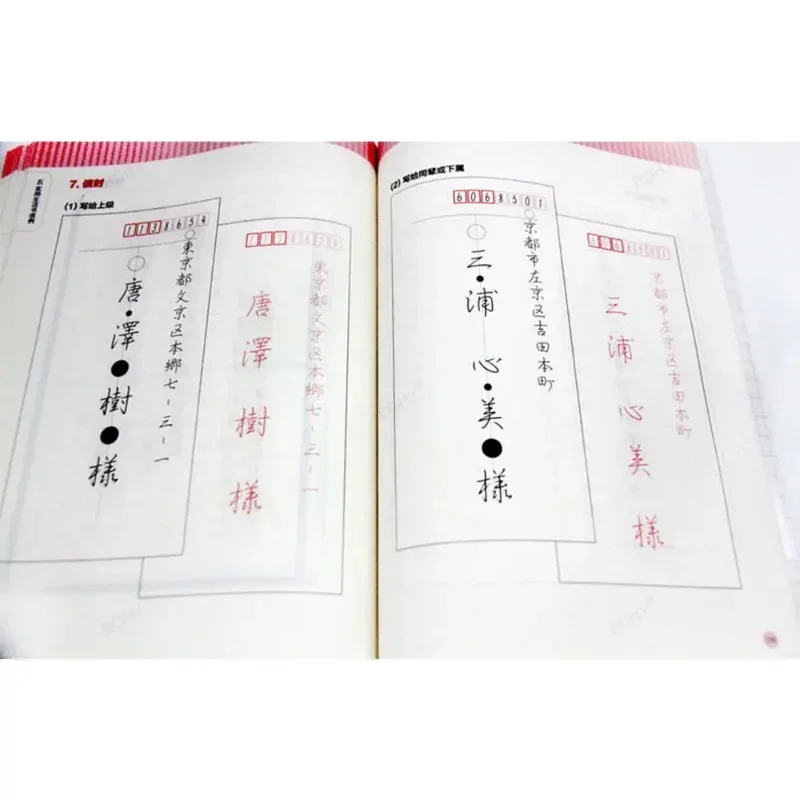 7. 信封
(1) 写给上级
1138654
東京都文京区本郷七-三-一
唐澤樹様
1138654
東京都文京区本郷七-三-一
唐澤樹様
(2) 写给同辈或下属
6068501
京都市左京区吉田本町
三浦 心美様
6068501
京都市左京区吉田本町
三浦心美様